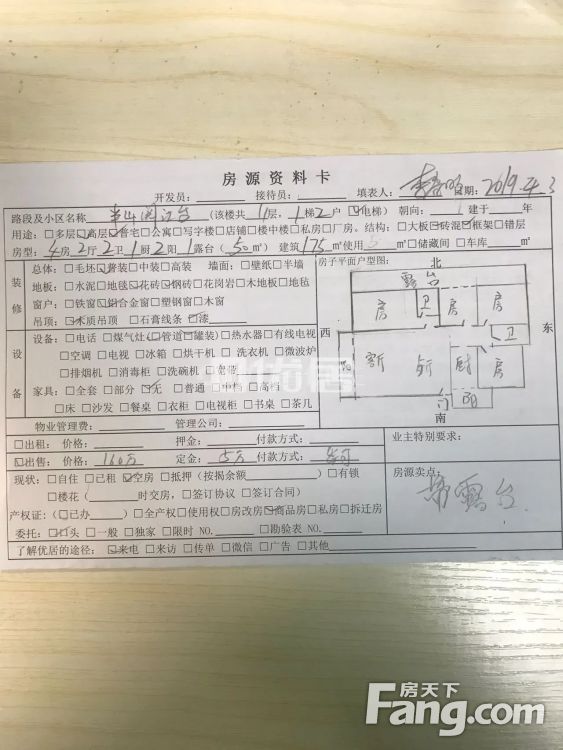 房源资料卡
开发员： 接待员： 填表人： 日期：2019.4.3
路段及小区名称 半山阅江台 (该楼共 11 层，1 梯 2 户 ☑电梯) 朝向： 建于 年
用途：□多层☑高层☑普宅□公寓□写字楼□店铺□楼中楼□私房□厂房。结构：□大板☑砖混☑框架□错层
房型：4房2厅2卫1厨2阳1露台(50㎡) 建筑175㎡使用 ㎡□储藏间□车库 ㎡
装修
总体：□毛坯☑普装□中装□高装 墙面：□壁纸□半墙
地板：□水泥□地毯□花砖☑钢砖□花岗岩□木地板□地毡
窗户：□铁窗☑铝合金窗□塑钢窗□木窗
吊顶：☑木质吊顶 □石膏线条 ☑漆
设备
设备：□电话 □煤气灶(□管道□罐装)□热水器□有线电视
□空调 □电视 □冰箱 □烘干机 □洗衣机 □微波炉
□排烟机 □消毒柜 □洗碗机 □宽带
家具：□全套 □部分 ☑无 □普通 □中档 □高档
□床 □沙发 □餐桌 □衣柜 □电视柜 □书桌 □茶几
房子平面户型图：
北
露台
房 卫 房 房
西 东
卫
阳 客 厅 厨 房
阳
门
南
物业管理费： 管理公司：
□出租：价格： 押金： 付款方式：
☑出售：价格：160万 定金：5万 付款方式：
业主特别要求：
现状：□自住 □已租 ☑空房 □抵押(按揭余额) □有锁
□楼花( 时交房，□签订协议 □签订合同)
房源卖点：
带露台
产权证：(□已办 ) □全产权□使用权□房改房☑商品房□私房□拆迁房
委托：☑口头 □一般 □独家 □限时 NO. □勘验表 NO.
了解优居的途径：☑来电 □来访 □传单 □微信 □广告 □其他
房天下
Fang.com